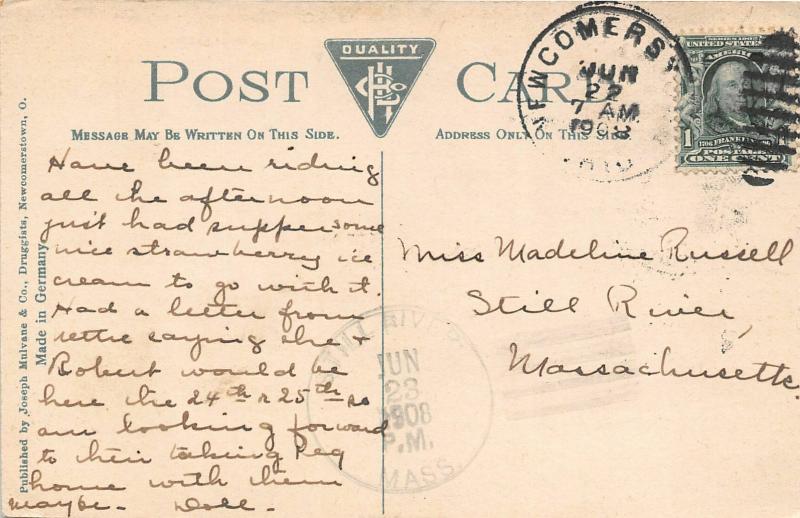 QUALITY
POST CARD
MESSAGE MAY BE WRITTEN ON THIS SIDE.
ADDRESS ONLY ON THIS SIDE
NEWCOMERS
JUN
22
7 AM
1908
SERIES 1902
UNITED STATES
1706 FRANKLIN
POSTAGE
1 ONE CENT
Published by Joseph Mulvane & Co., Druggists, Newcomerstown, O.
Made in Germany
Have been riding
all the afternoon
just had supper some
nice strawberry ice
cream to go with it.
Had a letter from
saying she +
Robert would be
here the 24th r 25th so
am looking forward
to their taking Peg
home with them
maybe. Doll.
Miss Madeline Russell
Still River,
Massachusetts.
STILL RIVER
JUN
23
1908
P.M.
MASS.